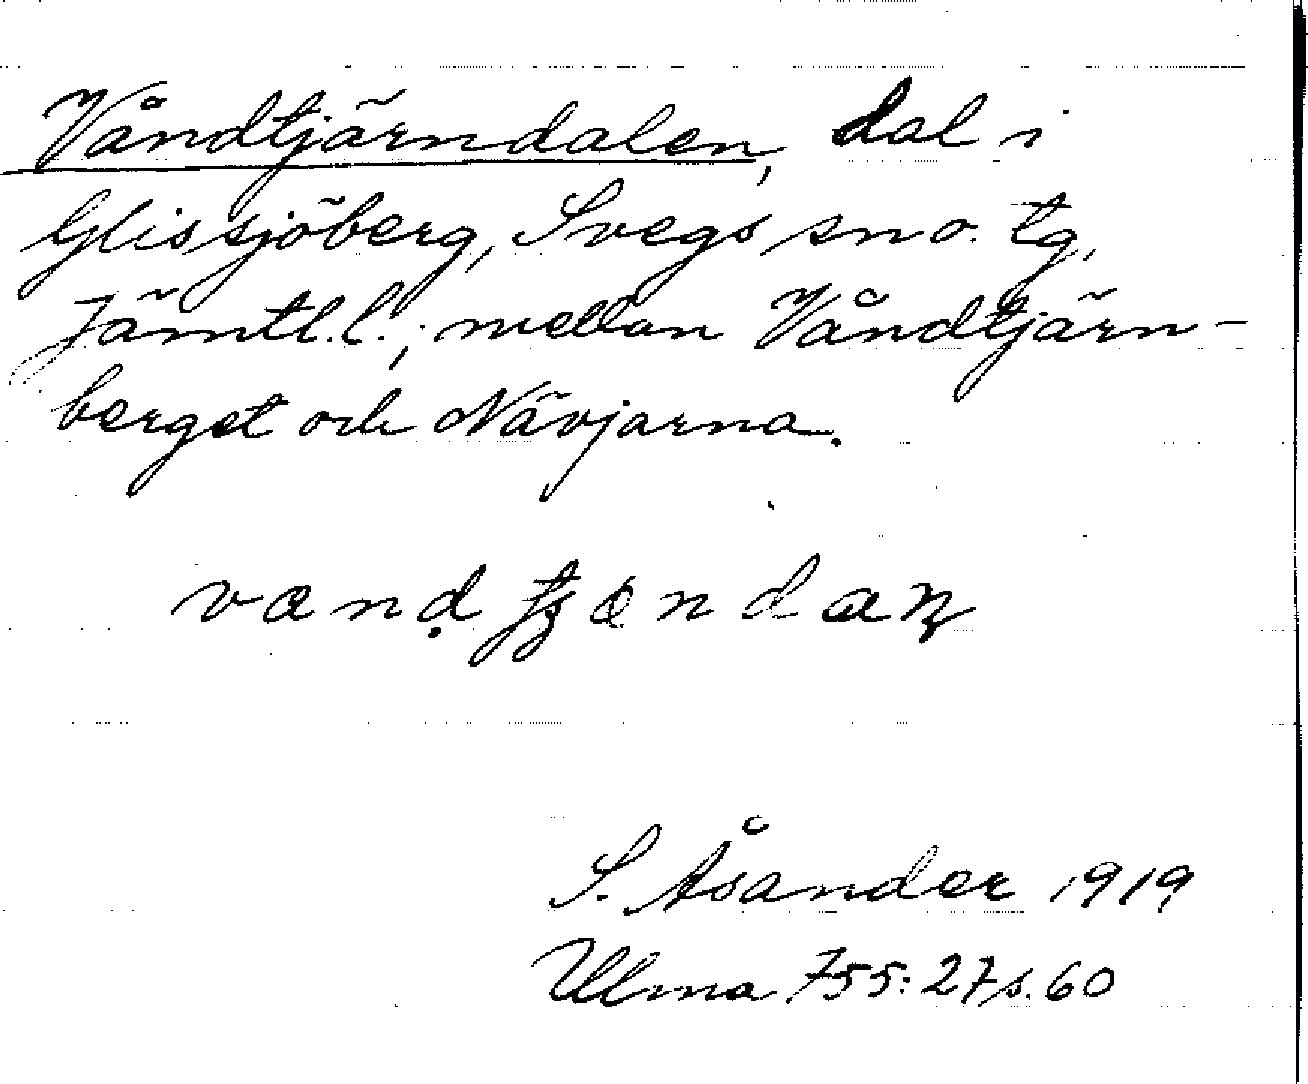 Våndtjärndalen, dal i
Glissjöberg, Svegs sn o. tg,
Jämtl.l., mellan Våndtjärn-
berget och Nävjarna.
S. Åsander 1919
Ulma 755:27 s. 60